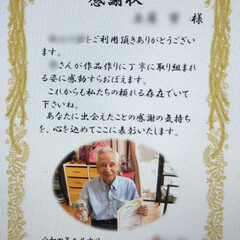 感謝状
様
をご利用頂きありがとうござい
ます。
さんが作品作りに丁寧に取り組まれ
る姿に感動すらおぼえます。
これからも私たちの頼れる存在でいて
下さいね。
あなたに出会えたことの感謝の気持ち
を、心を込めてここに表彰いたします。